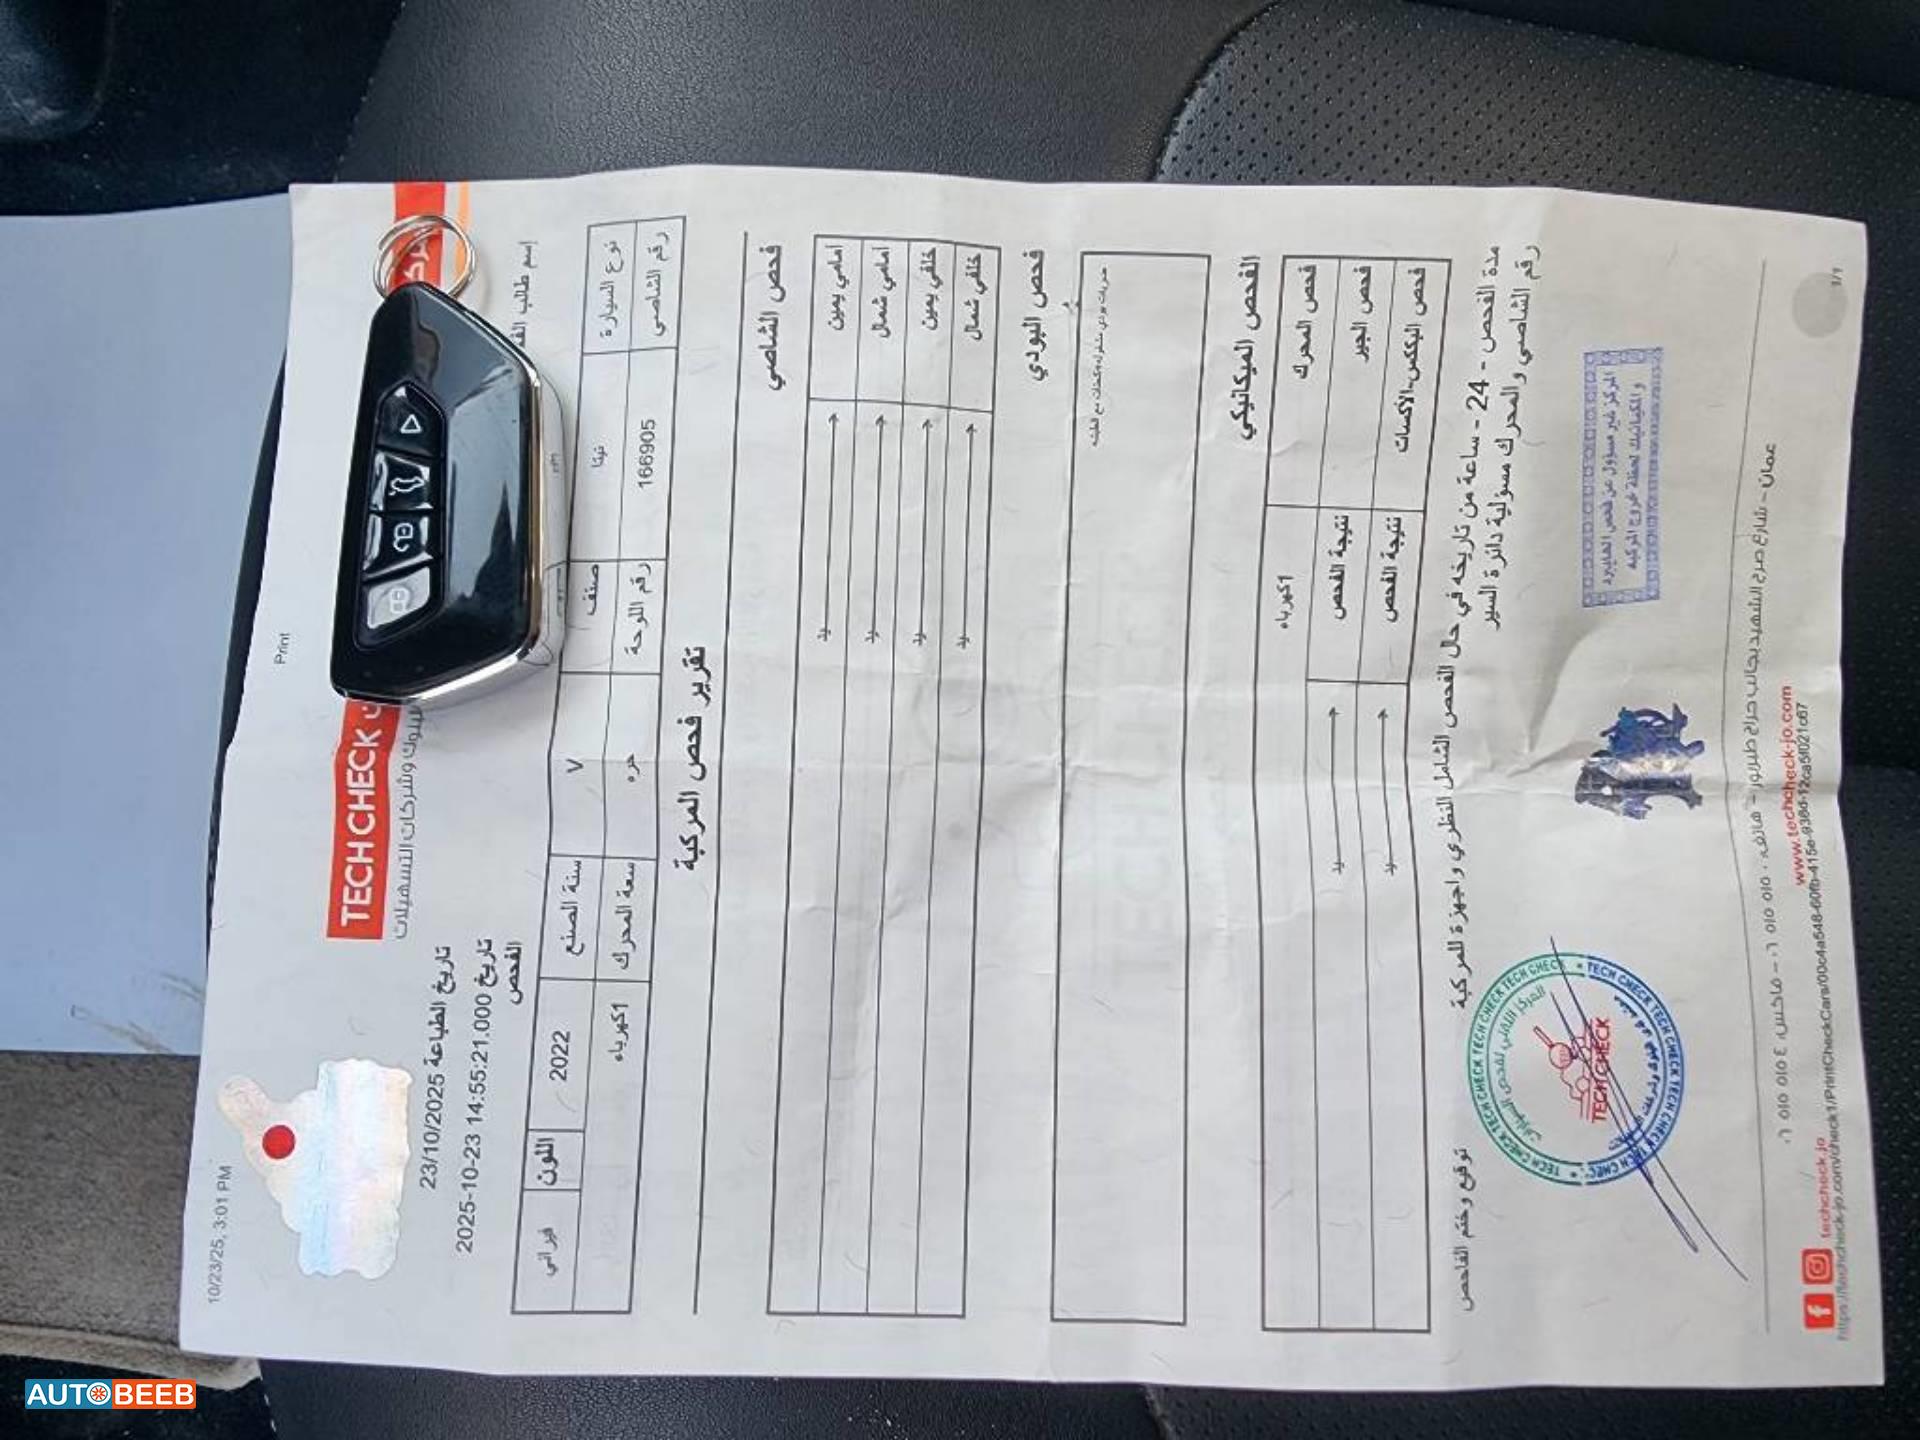 10/23/25, 3:01 PM
Print
TECH CHECK
البنوك وشركات التسهيلات
تاريخ الطباعة 23/10/2025
تاريخ 2025-10-23 14:55:21.000
الفحص
إسم طالب
نوع السيارة
نيتا
صنف
V
سنة الصنع
2022
اللون
فيراني
رقم الشاصي
166905
رقم اللوحة
حره
سعة المحرك
1كهرباء
تقرير فحص المركبة
فحص الشاصي
أمامي يمين
جيد
أمامي شمال
جيد
خلفي يمين
جيد
خلفي شمال
جيد
فحص البودي
الفحص الميكانيكي
فحص المحرك
1كهرباء
فحص الجير
نتيجة الفحص
جيد
فحص البككس-الأكسات
نتيجة الفحص
جيد
مدة الفحص - 24 - ساعة من تاريخه في حال الفحص الشامل النظري واجهزة للمركبة
رقم الشاصي والمحرك مسؤلية دائرة السير
توقيع وختم الفاحص
المركز غير مسؤول عن فحص الهايبرد
والمكيانيك لحظة خروج المركبه
TECH CHECK TECH CHECK TECH CHECK
TECH CHECK
عمان - شارع صرح الشهيد بجانب حراج طبربور - هاتف: ٠٦ ٥١٥ ٥١٥٠ - فاكس: ٠٦ ٥١٥ ٥١٥٤
techcheck.jo
www.techcheck-jo.com
https://techcheck-jo.com/check1/PrintCheckCars/00c4a548-60fb-415e-936d-12ca5f021c67
1/1
AUTOBEEB